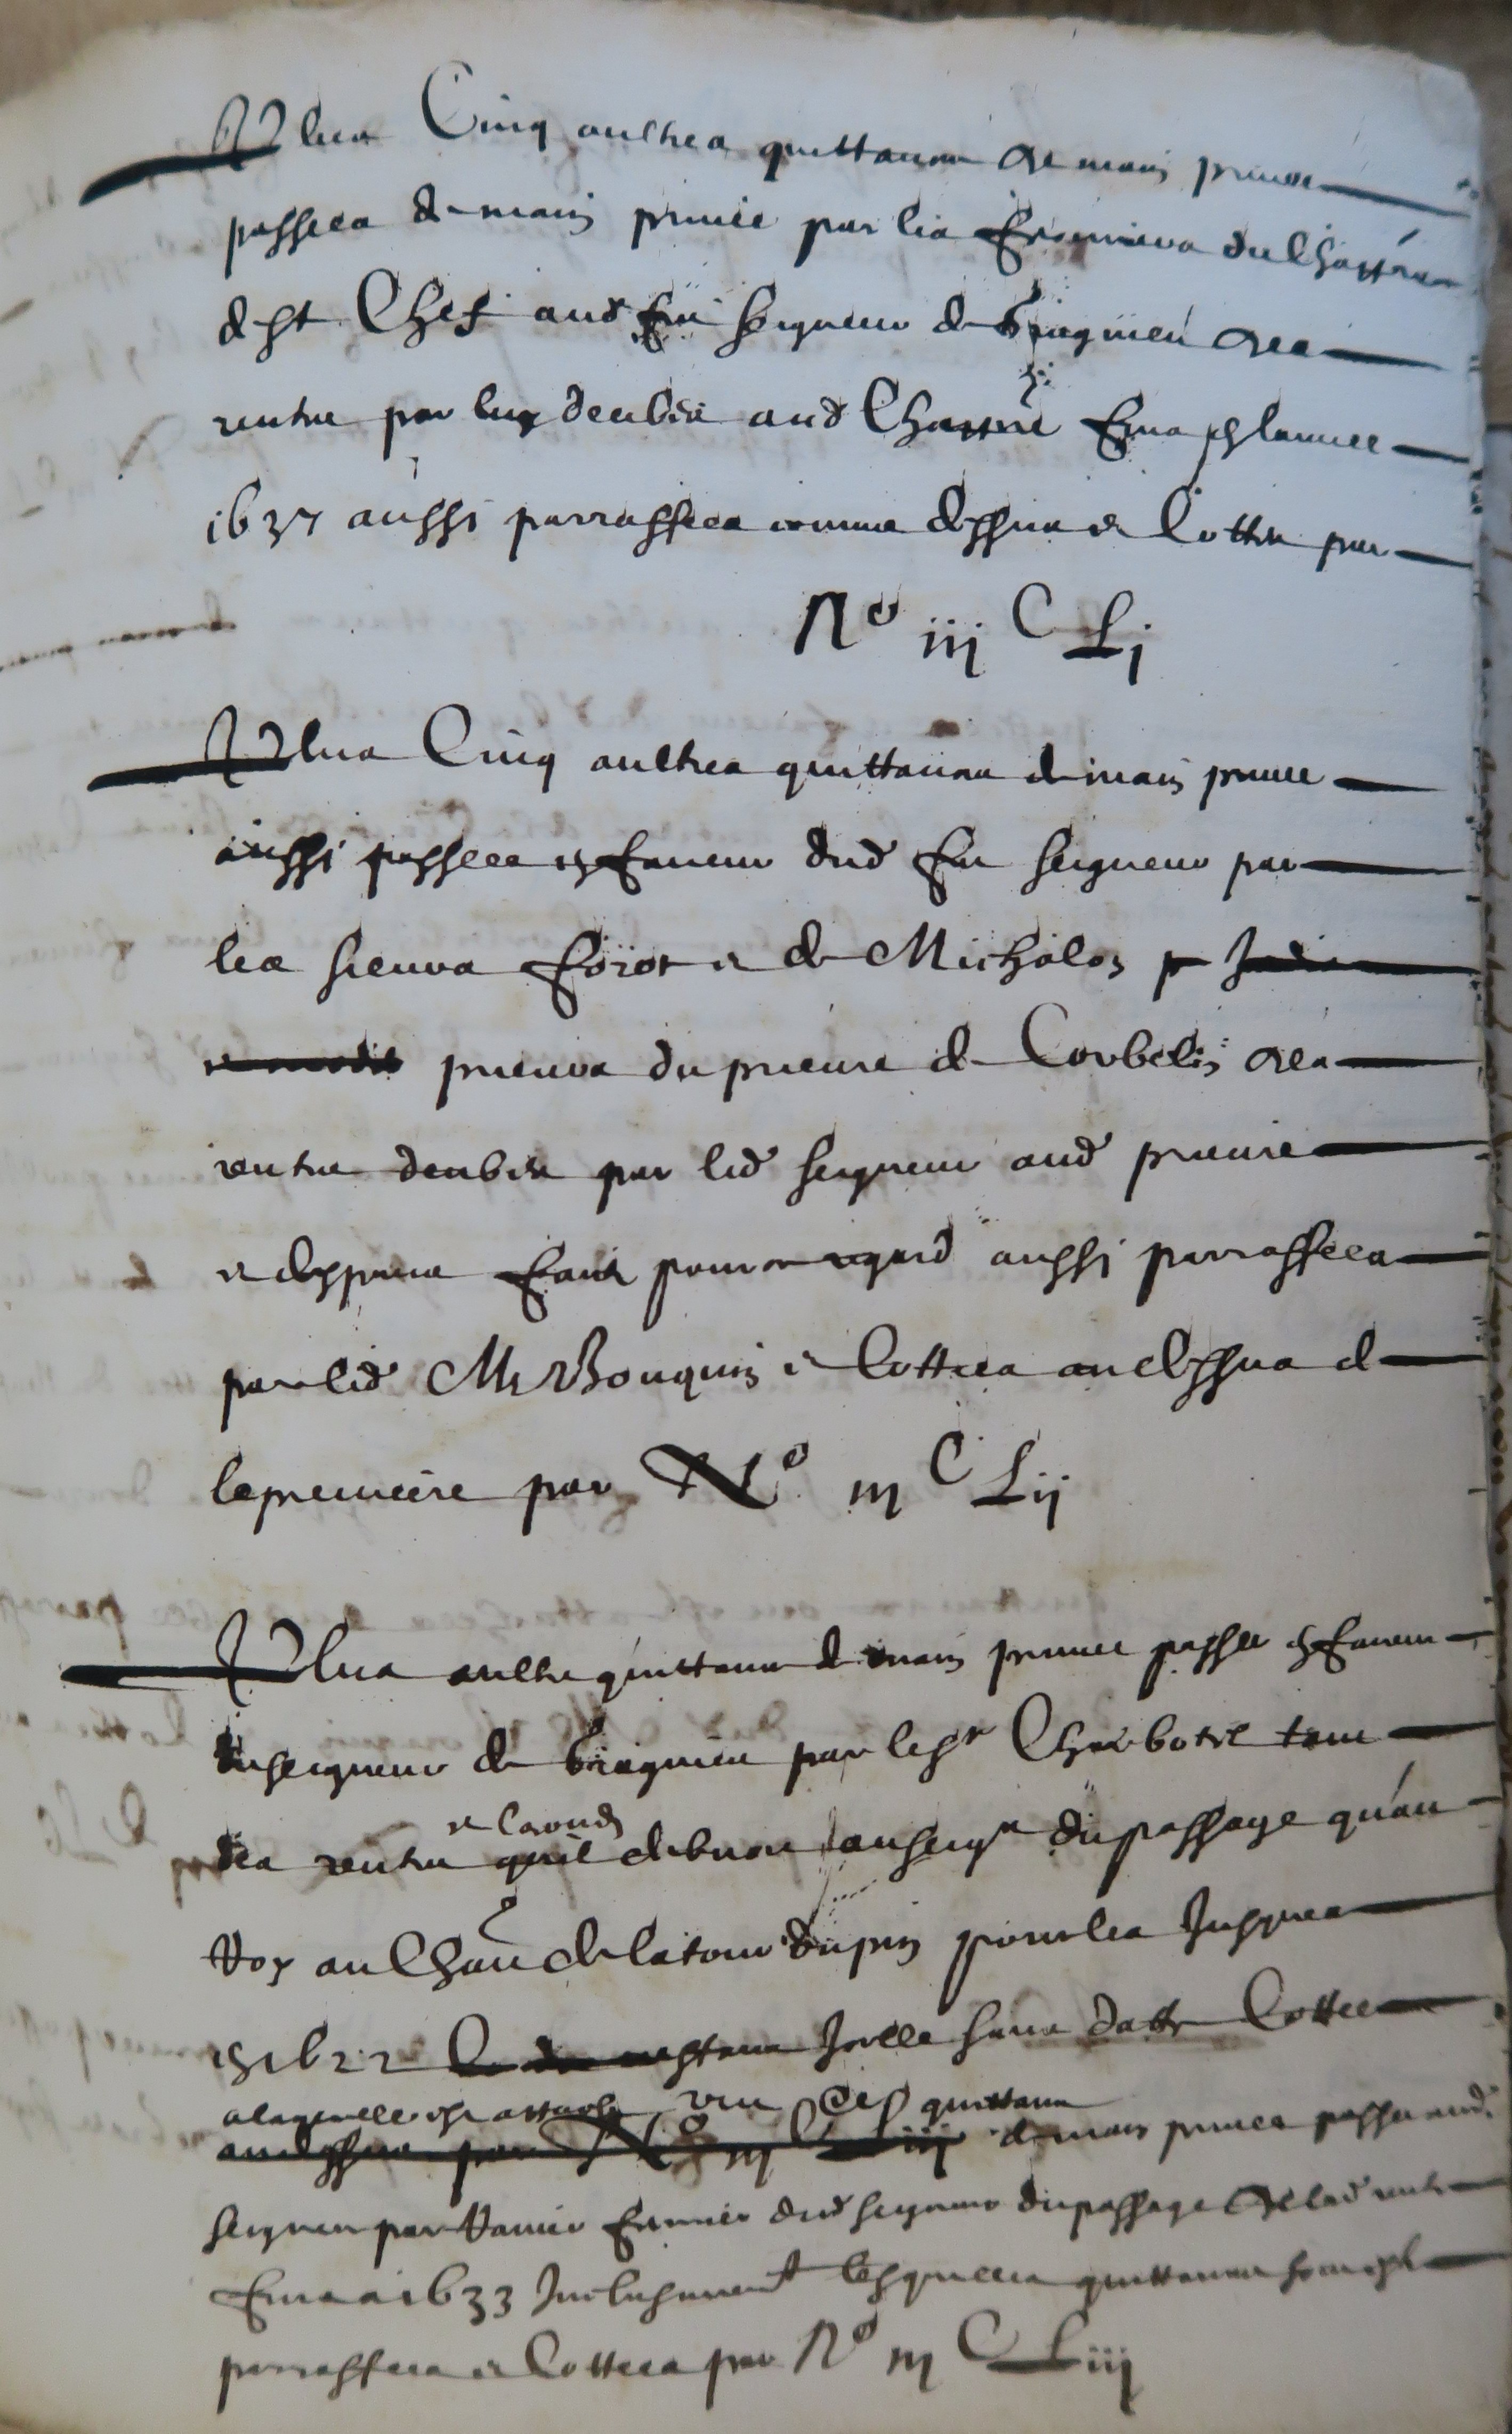 Plus Cinq aultres quittances de main privee
passees de main privee par les fermiers du Chappitre
de St Chef aud feu seigneur de Brangnieu des
rentes par luy deubes aud Chappitre fins en lannee
1637 aussi parraffees comme dessus et Cottees par
No iij C Lj
Plus Cinq aultres quittances de main privee
aussi passees en faveur dud feu seigneur par
les sieurs foirot et de Michalon
prieurs du prieure de Corbelin des
rentes deubes par led seigneur aud prieure
et despuis faict pour ce regard aussi parraffees
par led Me Bouquin et Cottees au dessus de
la premiere par No iij C Lij
Plus aultre quittance de main privee passee en faveur
du seigneur de Brangnieu par le sr Charbotel tant
des rentes et laouds quil debvoit au seigr du passage quau
Roy au Chau de la tour du pin pour les Jusques
en 1622 Icelle sans datte Cottee
a laquelle est attache une quittance
de main privee passee aud
seigneur par fermier dud seigneur du passage de lad rente
fins a 1633 Inclusivement lesquelles quittances sont
parraffees et Cottees par No iij C Liij